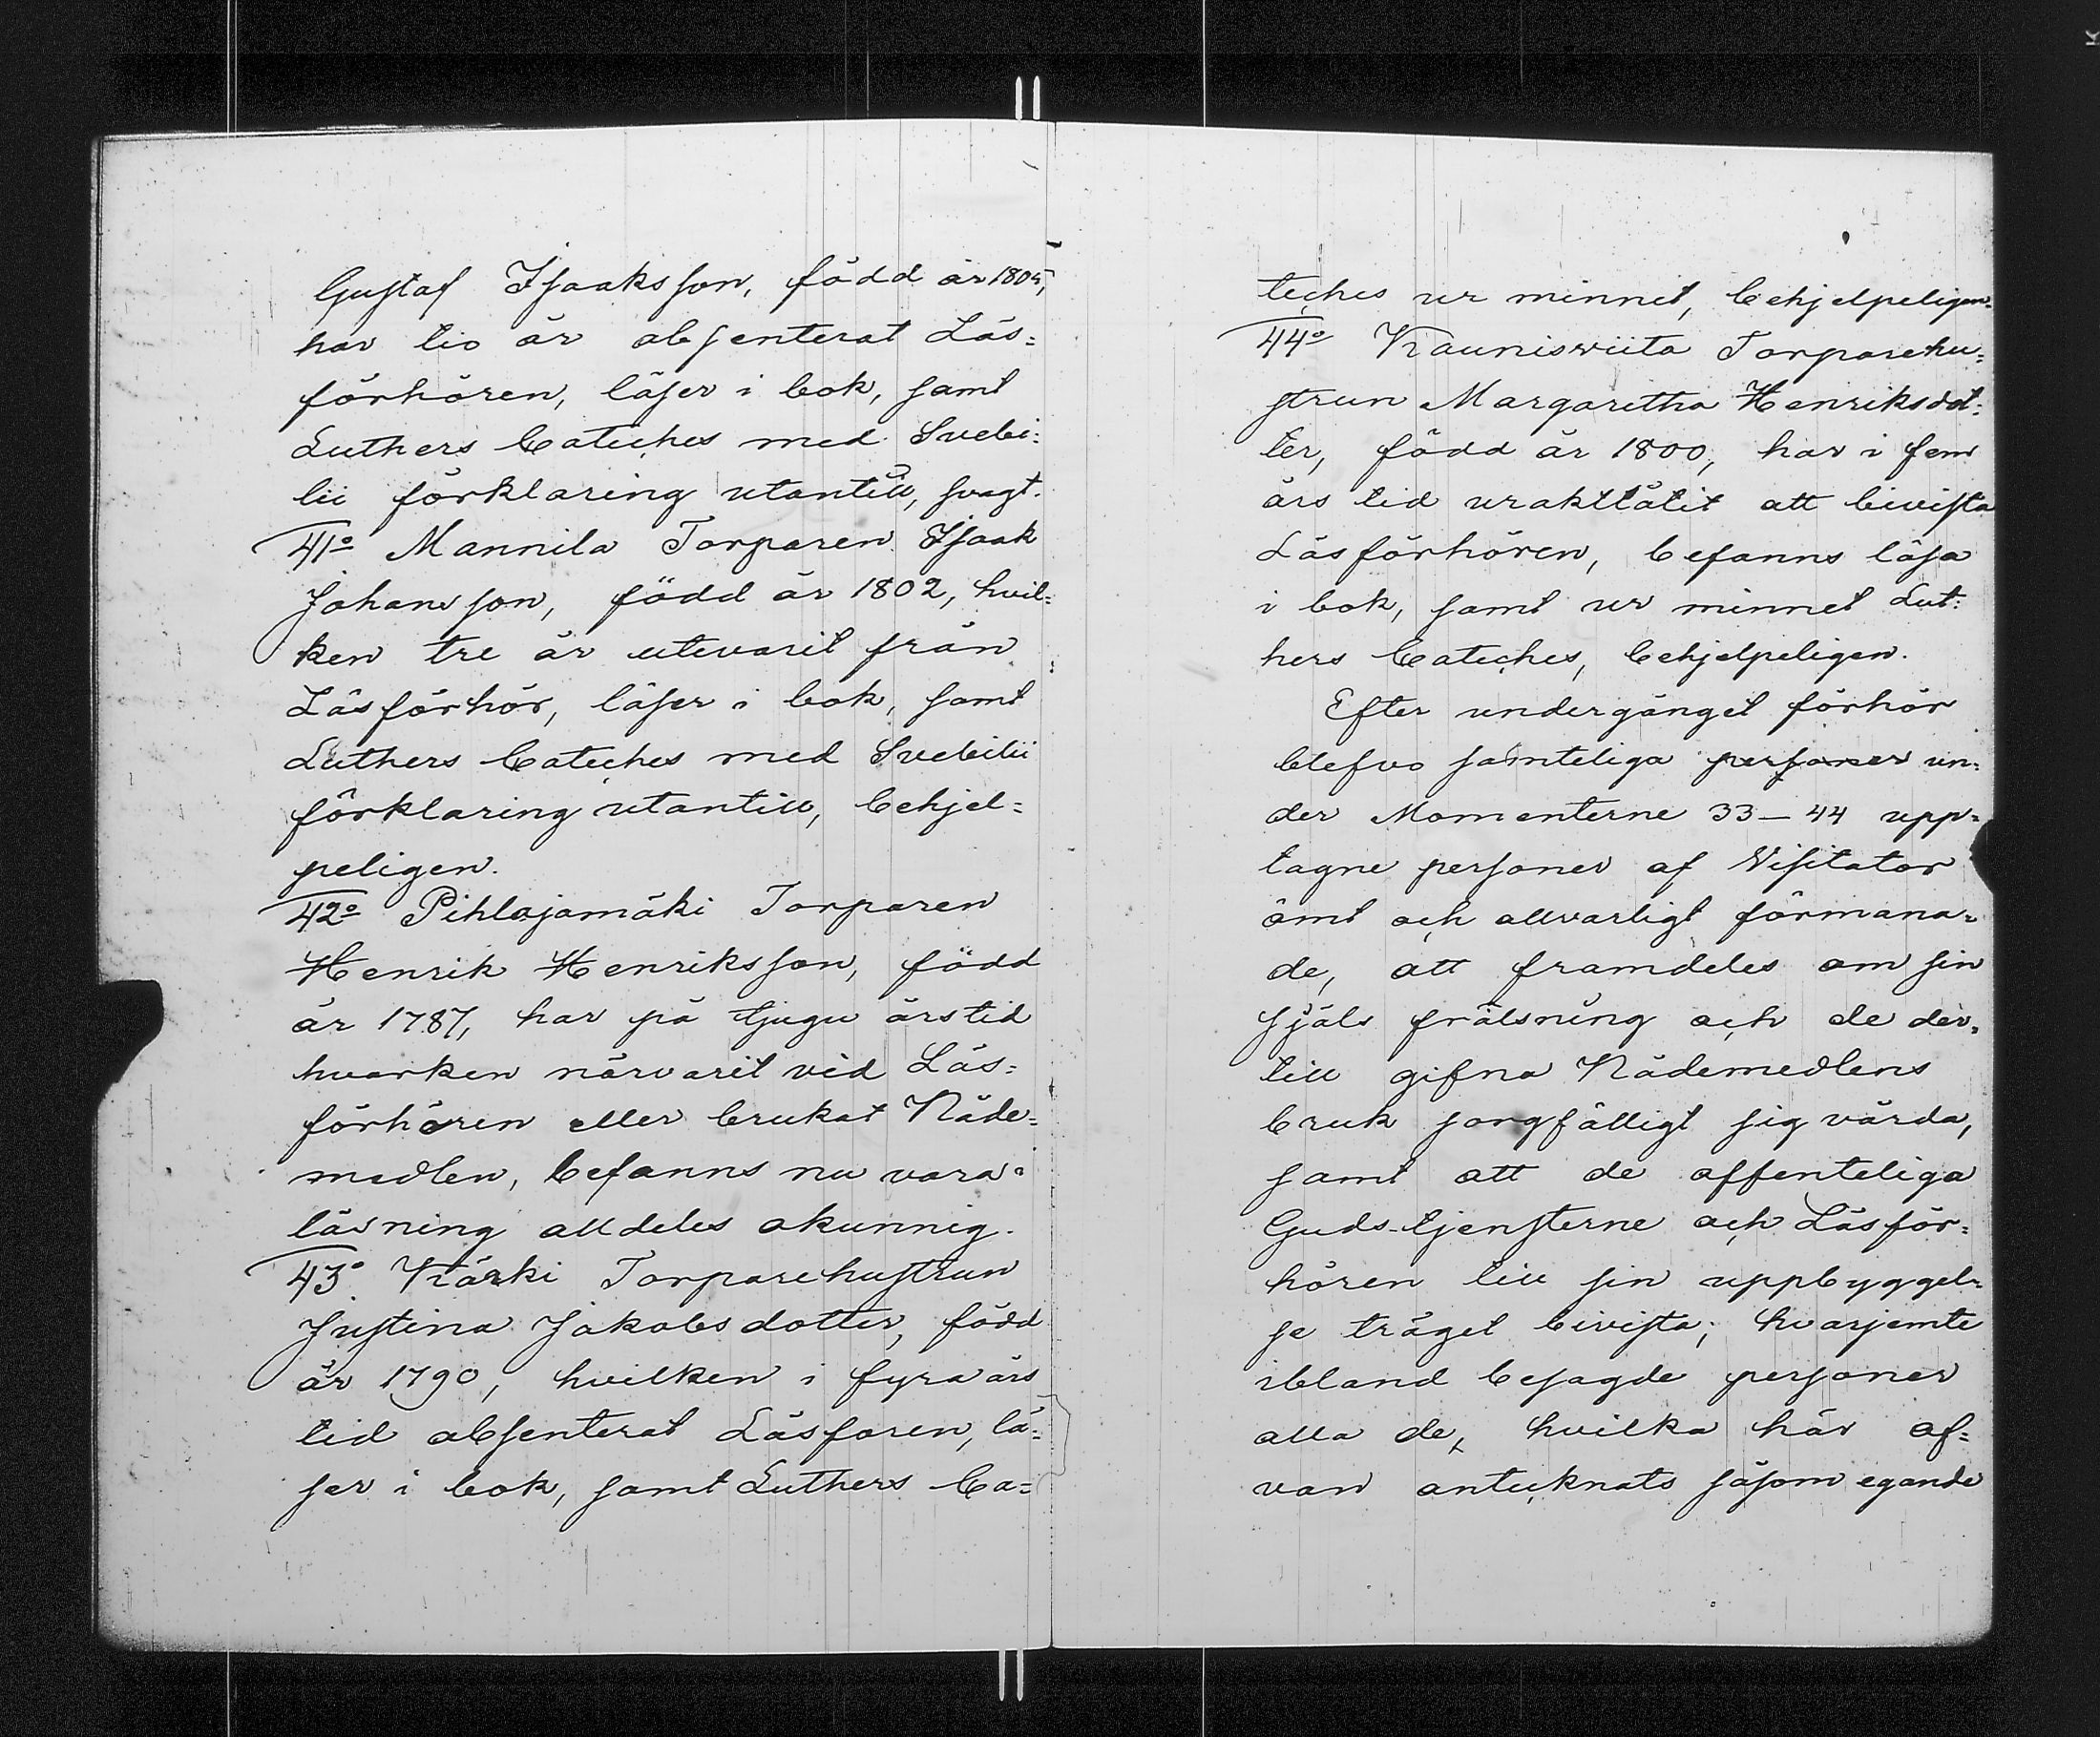 Gustaf Isaaksson, född år 1805,
har tio år absenterat Läs=
förhören, läser i bok, samt
Luthers Cateches med Svebi=
lii förklaring utantill, svagt.
41o Mannila Torparen Isaak
Johansson, född år 1802, hvil=
ken tre år utevarit från
Läsförhör, läser i bok, samt
Luthers Cateches med Svebilii
förklaring utantill, behjel=
peligen.
42o Pihlajamäki Torparen
Henrik Henriksson, född
år 1787, har på tjugu årstid
hvarken närvarit vid Läs=
förhören eller brukat Nåde=
medlen, befanns nu vara i
läsning alldeles okunnig.
43o Kärki Torparehustrun
Justina Jakobsdotter, född
år 1790, hvilken i fyra års
tid absenterat Läsforen, lä=
ser i bok, samt Luthers Ca=
teches ur minnet, behjelpeligen.
44o Kaunisviita Torparehu=
strun Margaretha Henriksdot=
ter, född år 1800, har i fem
års tid uraktlåtit att bivista
Läsförhören, befanns läsa
i bok, samt ur minnet Lut=
hers Cateches, behjelpeligen.
Efter undergånget förhör
blefvo samteliga personer un=
der Momenterne 33–44 upp=
tagne personer af Visitator
ömt och allvarligt förmana=
de, att framdeles om sin
själs frälsning och de der=
till gifna Nådemedlens
bruk sorgfälligt sig vårda,
samt att de offenteliga
Guds-tjensterne och Läsför=
hören till sin uppbyggel=
se träget bivista; hvarjemte
ibland besagde personer
alla de, hvilka här of=
van antecknats såsom egande